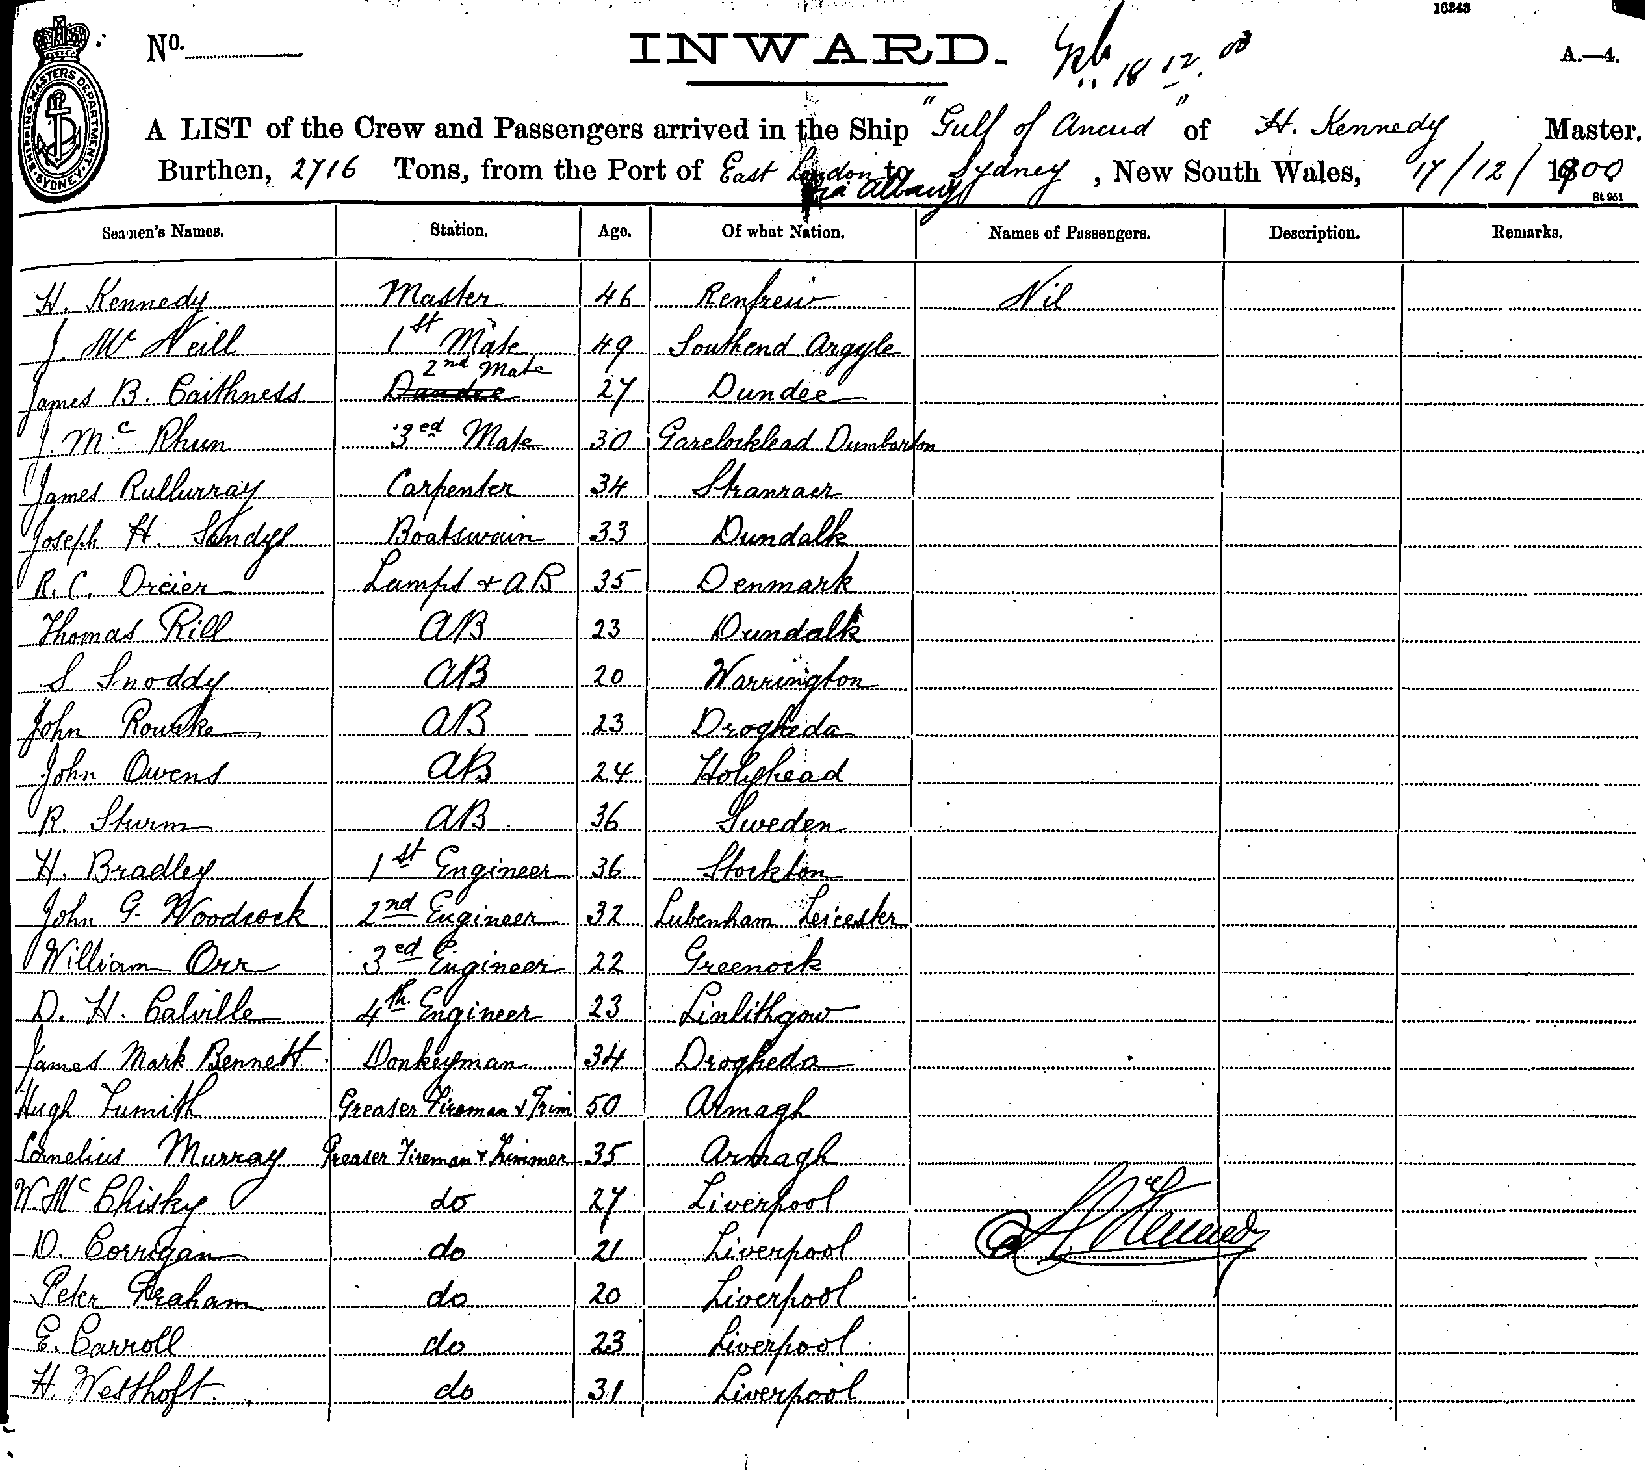 16243
No.
INWARD.
18 12. 00
A.—4.
SHIPPING MASTERS DEPARTMENT SYDNEY
A LIST of the Crew and Passengers arrived in the Ship "Gulf of Ancud" of H. Kennedy Master.
Burthen, 2716 Tons, from the Port of East London to Sydney, New South Wales, 17/12/1900
via Albany
St 951
Seamen's Names. Station. Age. Of what Nation. Names of Passengers. Description. Remarks.
H. Kennedy Master 46 Renfrew Nil
J. Mc Neill 1st Mate 49 Southend Argyle
James B. Caithness Dundee 2nd Mate 27 Dundee
J. Mc Rhun 3ed Mate 30 Garelocklead Dumbarton
James Rullurray Carpenter 34 Stranraer
Joseph H. Sandys Boatswain 33 Dundalk
R. C. Dreier Lamps & AB 35 Denmark
Thomas Rill AB 23 Dundalk
S Snoddy AB 20 Warrington
John Rourke AB 23 Drogheda
John Owens AB 24 Holyhead
R. Sturm AB 36 Sweden
H. Bradley 1st Engineer 36 Stockton
John G. Woodcock 2nd Engineer 32 Lubenham Leicester
William Orr 3ed Engineer 22 Greenock
D. H. Calville 4th Engineer 23 Linlithgow
James Mark Bennett Donkeyman 34 Drogheda
Hugh Lumith Greaser Fireman & Trim 50 Armagh
Cornelius Murray Greaser Fireman & Trimmer 35 Armagh
W. Mc Chisky do 27 Liverpool
D. Corrigan do 21 Liverpool
Peter Graham do 20 Liverpool
E. Carroll do 23 Liverpool
H. Westhoft. do 31 Liverpool
H Kennedy